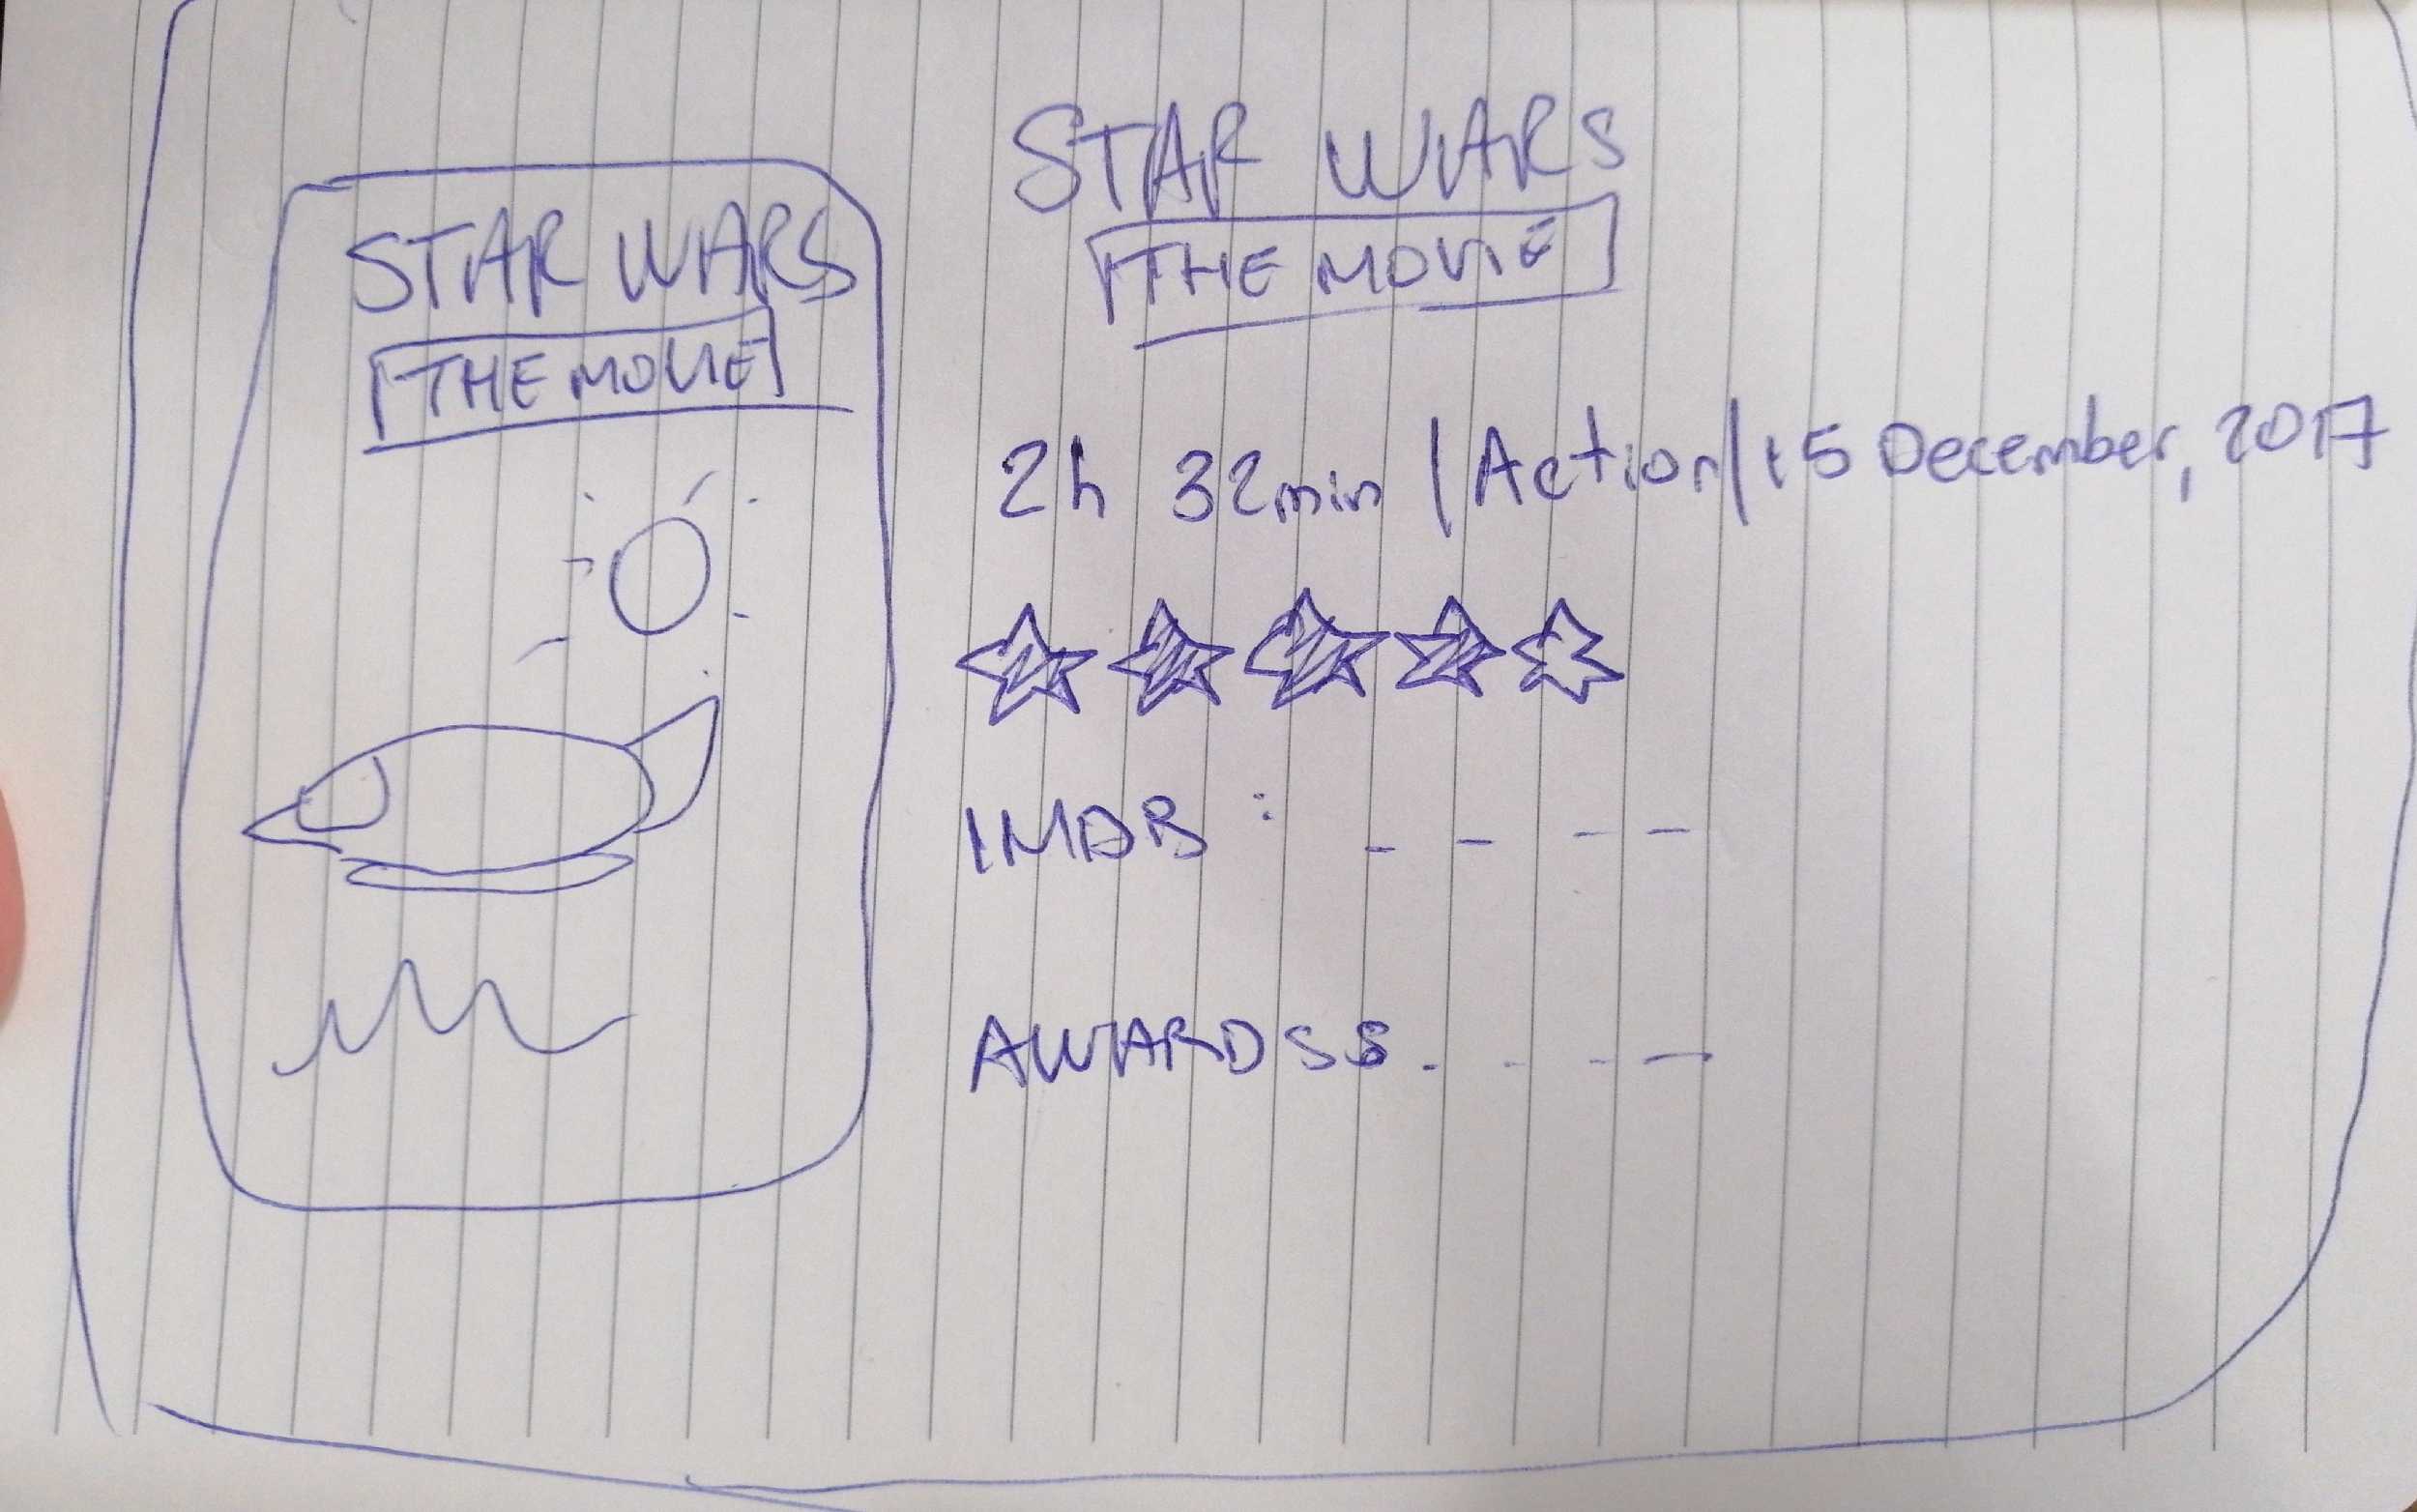 STAR WARS
THE MOVIE
STAR WARS
THE MOVIE
2h 32min | Action | 15 December, 2017
IMDB : - - - -
AWARDSS. - - -